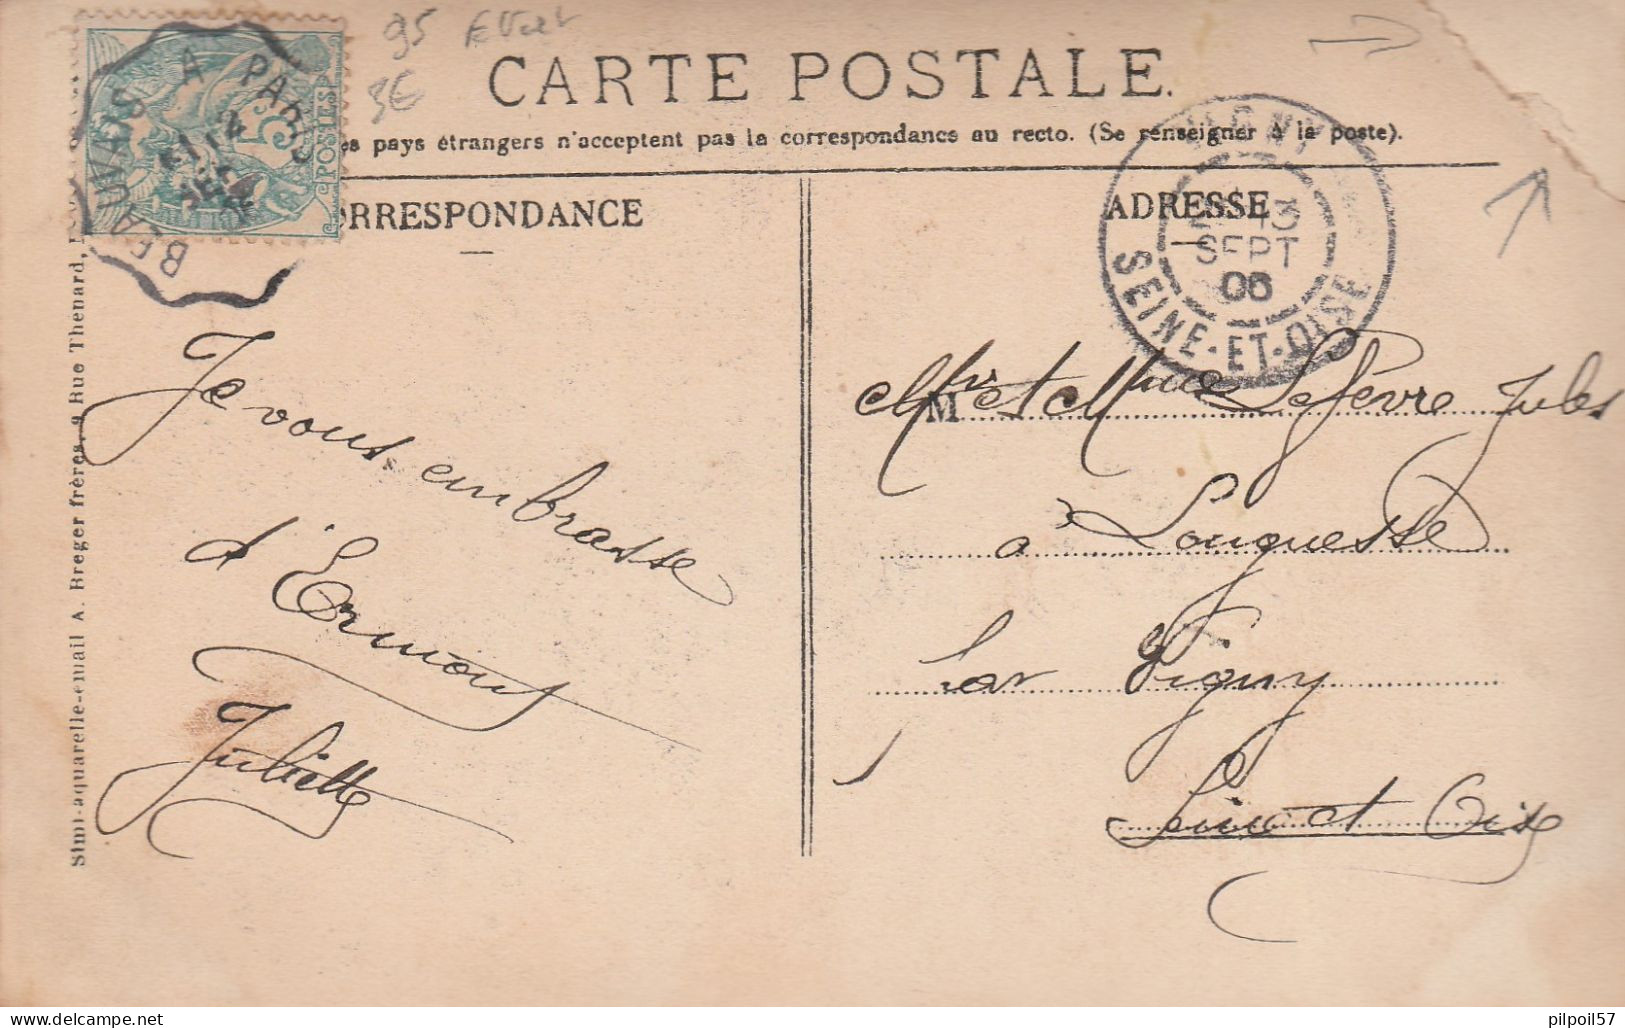 95
3€
CARTE POSTALE.
pays étrangers n'acceptent pas la correspondance au recto. (Se renseigner à la poste).
BEAUVAIS A PARIS
5
POSTES
ORRESPONDANCE
ADRESSE
VIGNY
13
SEPT
06
SEINE-ET-OISE
Je vous embrasse
d'Ermont
Juliette
M
Mr et Mme Lefèvre Jules
à Longuesse
par Vigny
Seine et Oise
Simi-aquarelle-email A. Breger frères, 9 Rue Thenard,
pilpoil57